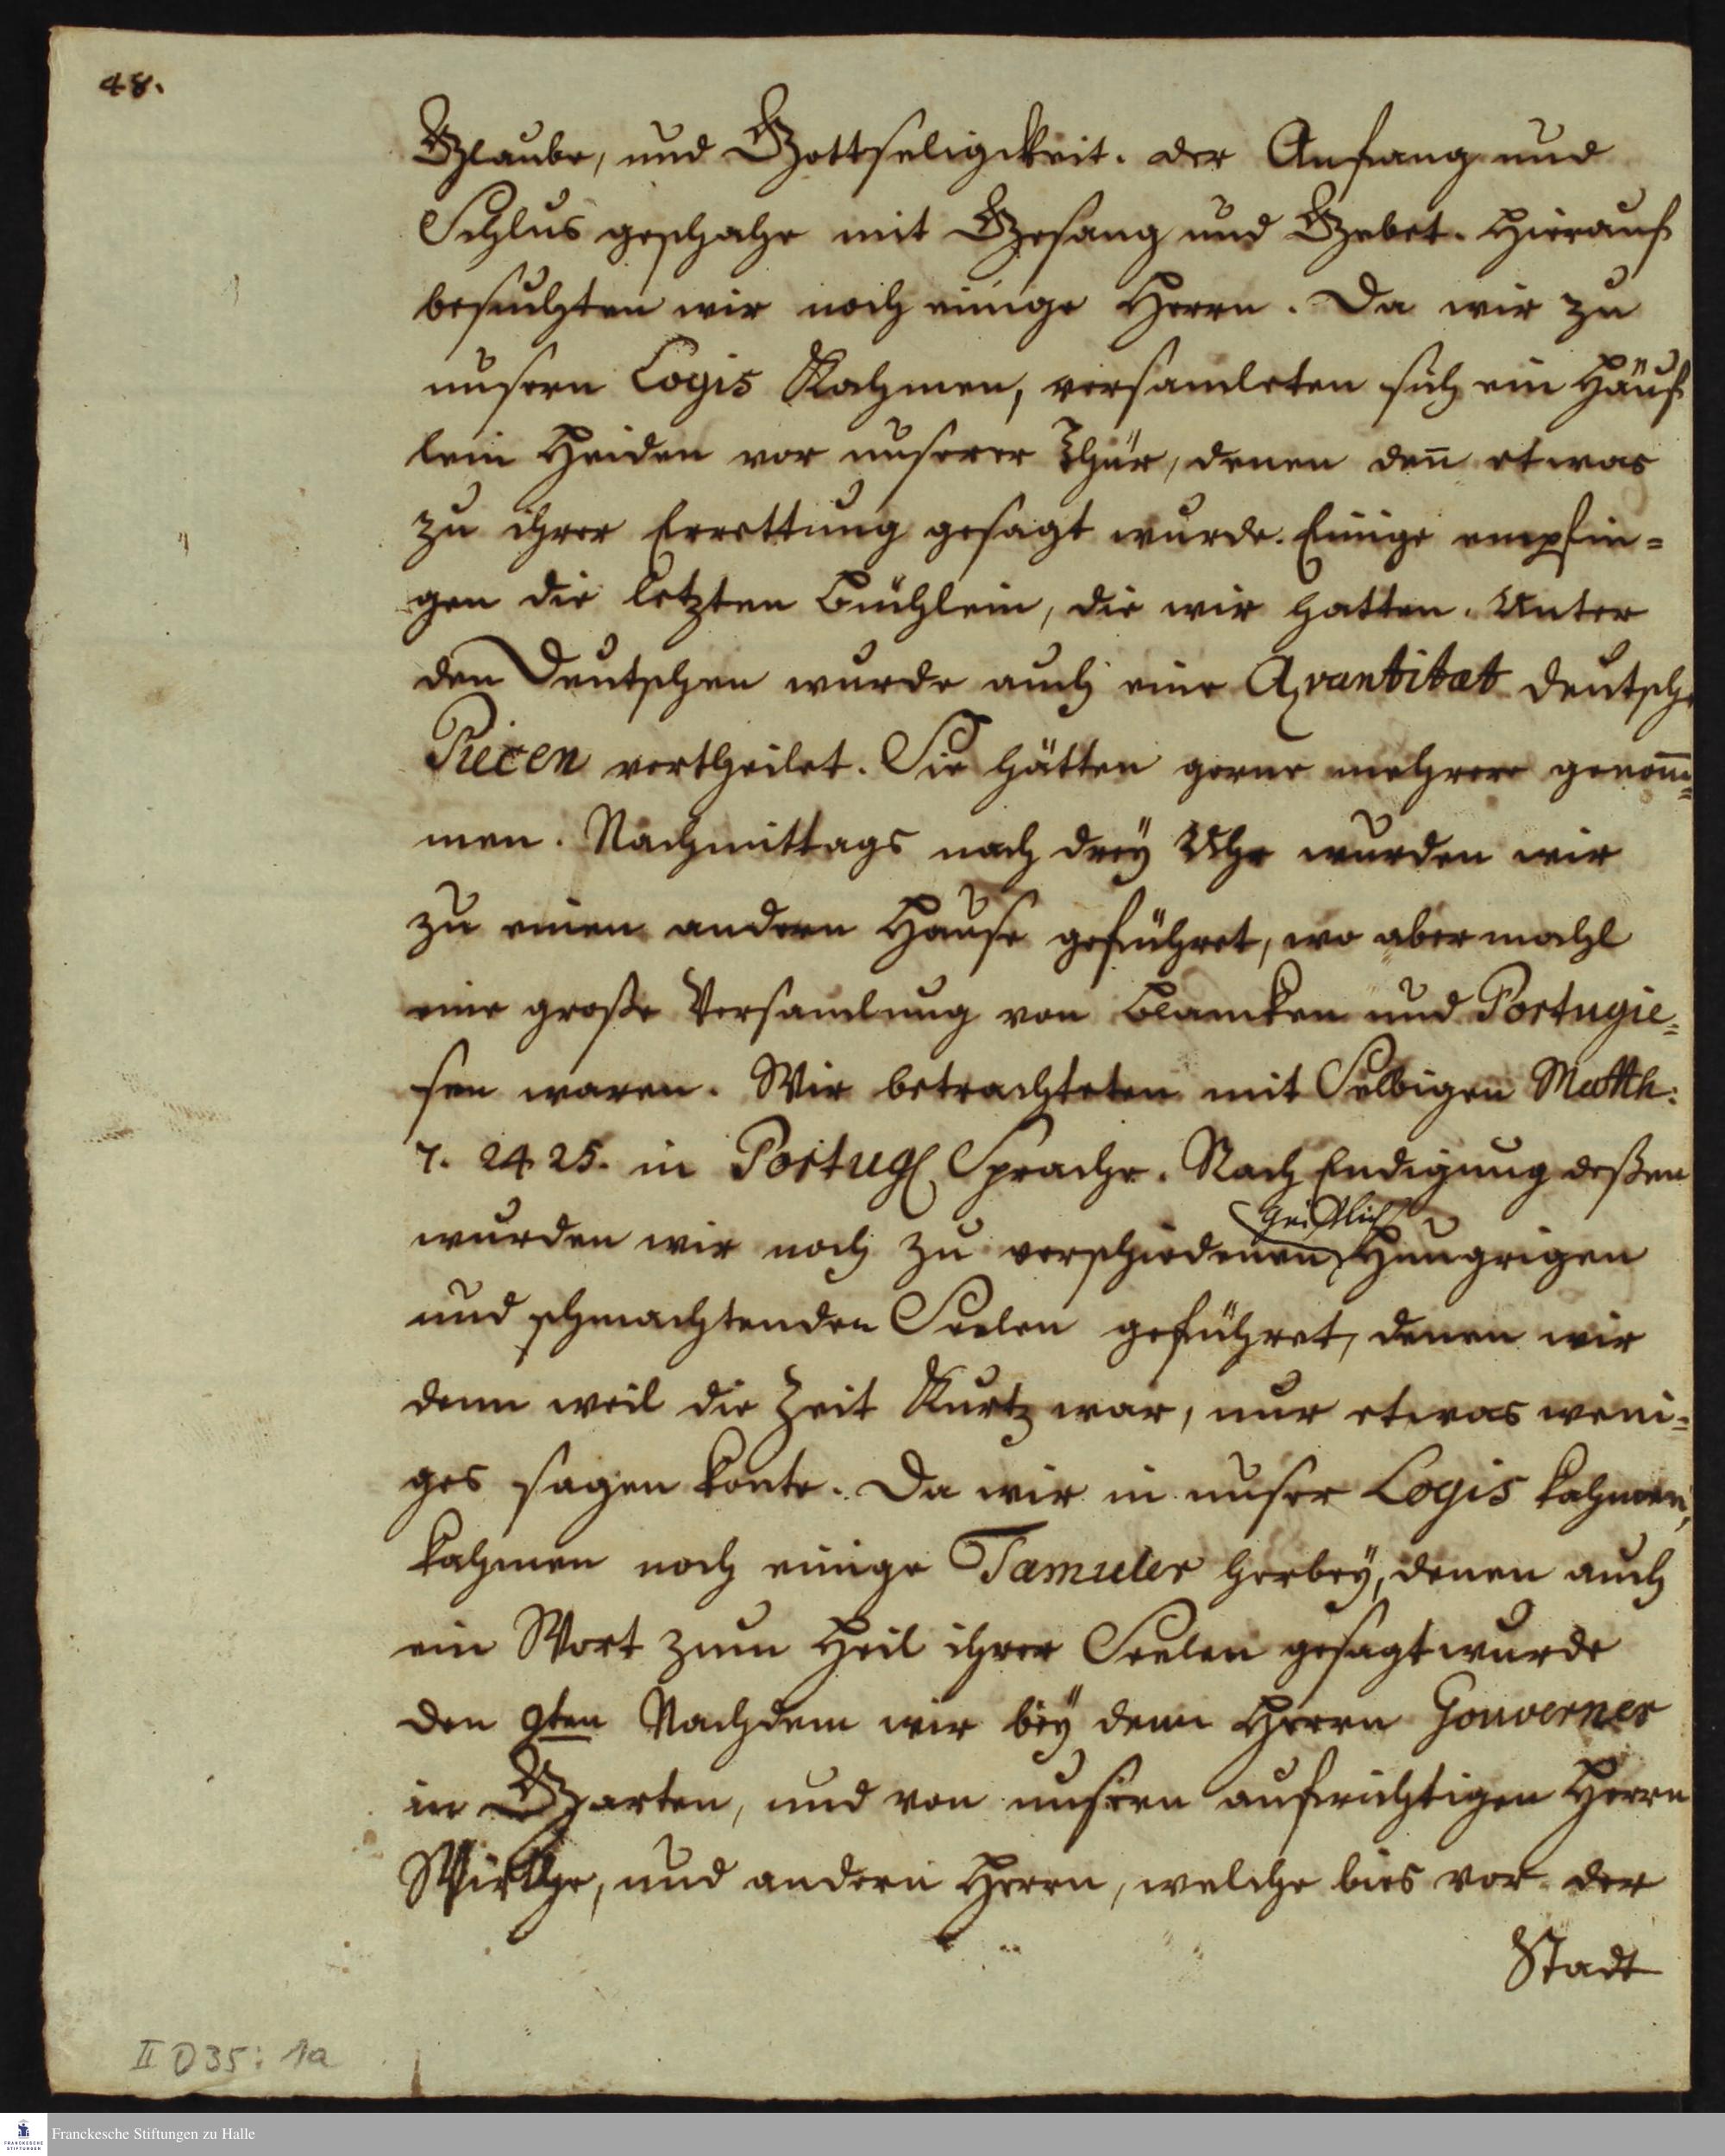 48.
Glaube, und Gottseligckeit. der Anfang und
Schlus geschahe mit Gesang und Gebet. Hierauf
besuchten wir noch einige Herrn. Da wir zu
unsern Logis Kahmen, versamleten sich ein Häuf
lein Heiden vor unserer Thür, denen den̄ etwas
zu ihrer Errettung gesagt wurde. Einige empfin=
gen die letzten Büchlein, die wir hatten. Unter
den Deutschen wurde auch eine Qvantitæt deutsche
Piecen vertheilet. Sie hätten gerne mehrere genom̄=
men. Nachmittags nach drey Uhr wurden wir
zu einen andern Hause geführet, wo abermahl
eine große Versamlung von Blancken und Portugie=
sen waren. Wir betrachteten mit Selbigen Matth:
7. 24. 25. in Portug Sprache. Nach Endigung deßen
geistlich
wurden wir noch zu verschiedenen Hungrigen
und schmachtenden Seelen geführet, denen wir
denn weil die Zeit Kurtz war, nur etwas weni=
ges sagen konte. Da wir in unser Logis kahmen,
kahmen noch einige Tamuler herbey, denen auch
ein Wort zum Heil ihrer Seelen gesagt wurde
den 9ten Nachdem wir bey dem Herrn Gouverner
in Garten, und von unsern aufrichtigen Herrn
Wirthe, und andern Herrn, welche bies vor der
Stadt
II D35: 1a
FRANCKESCHE STIFTUNGEN
Franckesche Stiftungen zu Halle